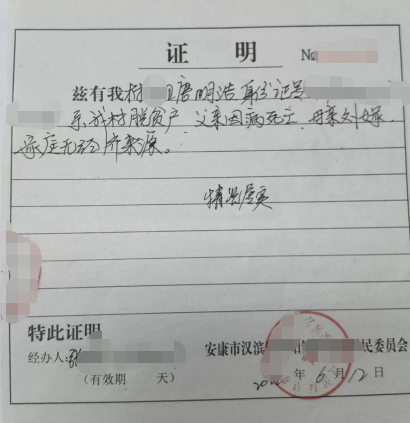 证 明 №
兹有我村 唐明浩 身份证号
系我村脱贫户 父亲因病死亡 母亲外嫁
家庭无经济来源。
情况属实
特此证明
经办人:张 安康市汉滨 民委员会
(有效期 天) 年 6 月 12 日